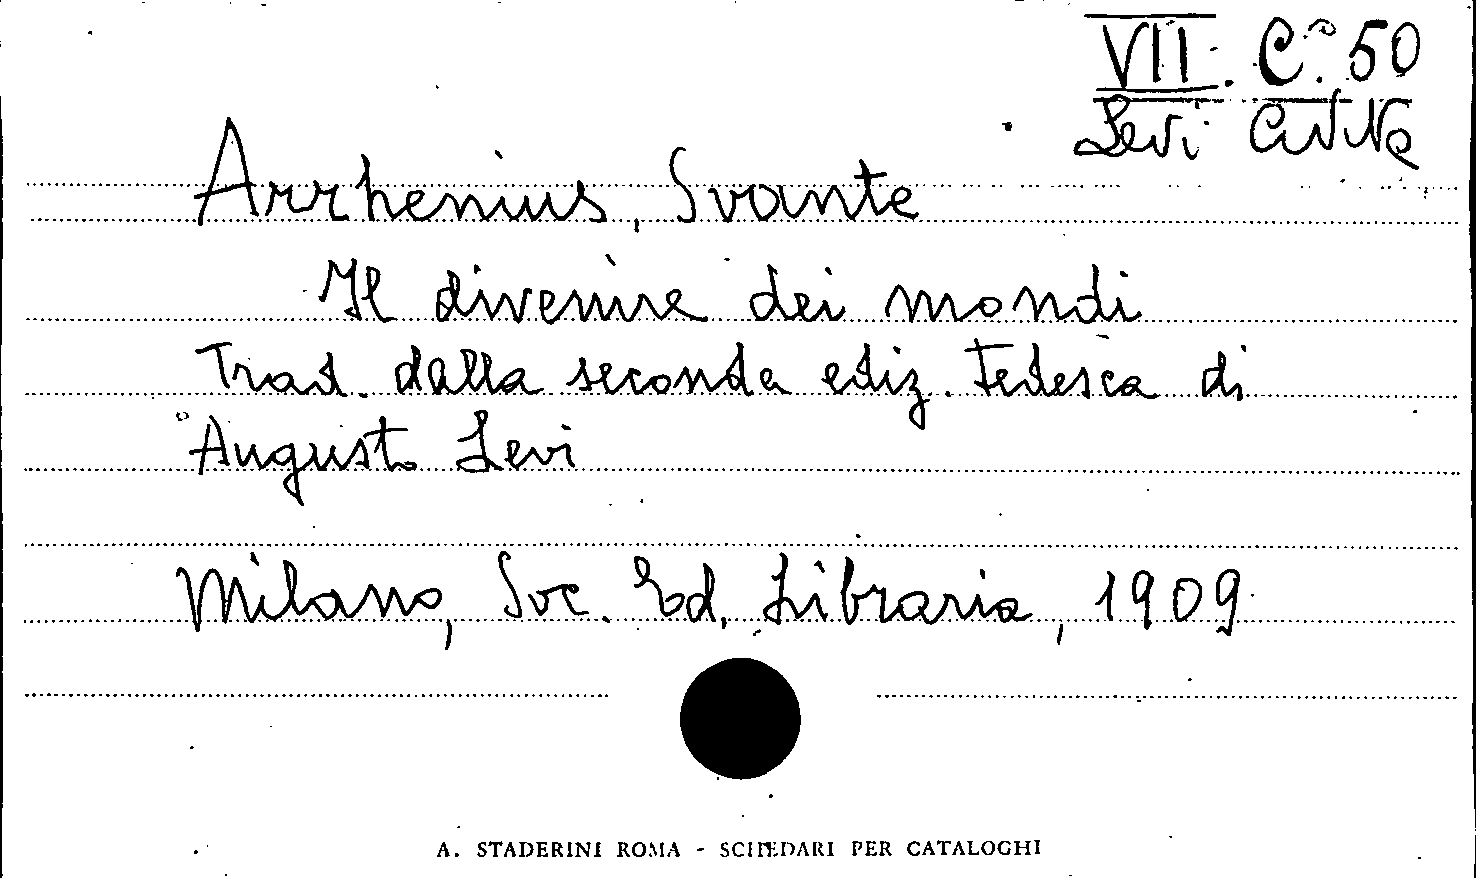 VII. C. 50
Levi Civita
Arrhenius, Svante
Il divenire dei mondi
Trad. dalla seconda ediz. tedesca di
Augusto Levi
Milano, Soc. Ed. Libraria, 1909
A. STADERINI ROMA - SCHEDARI PER CATALOGHI